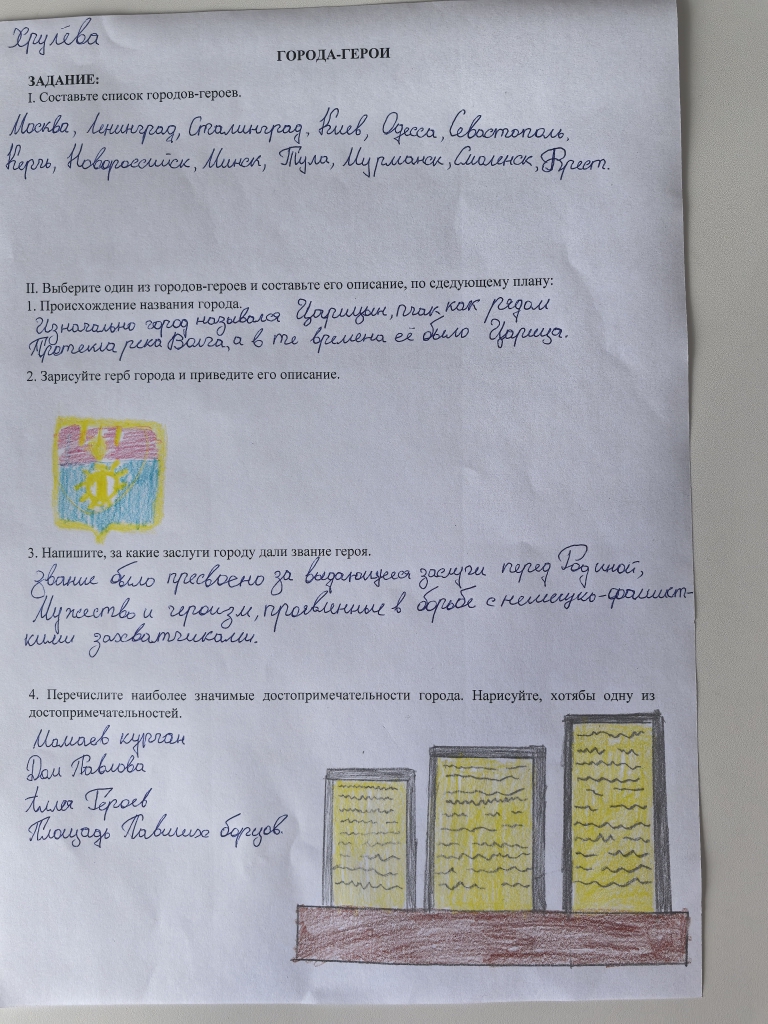 Хрулёва
ГОРОДА-ГЕРОИ
ЗАДАНИЕ:
I. Составьте список городов-героев.
Москва, Ленинград, Сталинград, Киев, Одесса, Севастополь,
Керчь, Новороссийск, Минск, Тула, Мурманск, Смоленск, Брест.
II. Выберите один из городов-героев и составьте его описание, по сдедующему плану:
1. Происхождение названия города.
Изначально город назывался Царицын, так как рядом
Протекла река Волга, а в те времена её было Царица.
2. Зарисуйте герб города и приведите его описание.
3. Напишите, за какие заслуги городу дали звание героя.
Звание было пресвоено за выдающиеся заслуги перед Родиной,
Мужество и героизм, проявленные в борьбе с немецко-фашист-
кими захватчиками.
4. Перечислите наиболее значимые достопримечательности города. Нарисуйте, хотябы одну из
достопримечательностей.
Мамаев курган
Дом Павлова
Аллея Героев
Площадь Павших борцов.